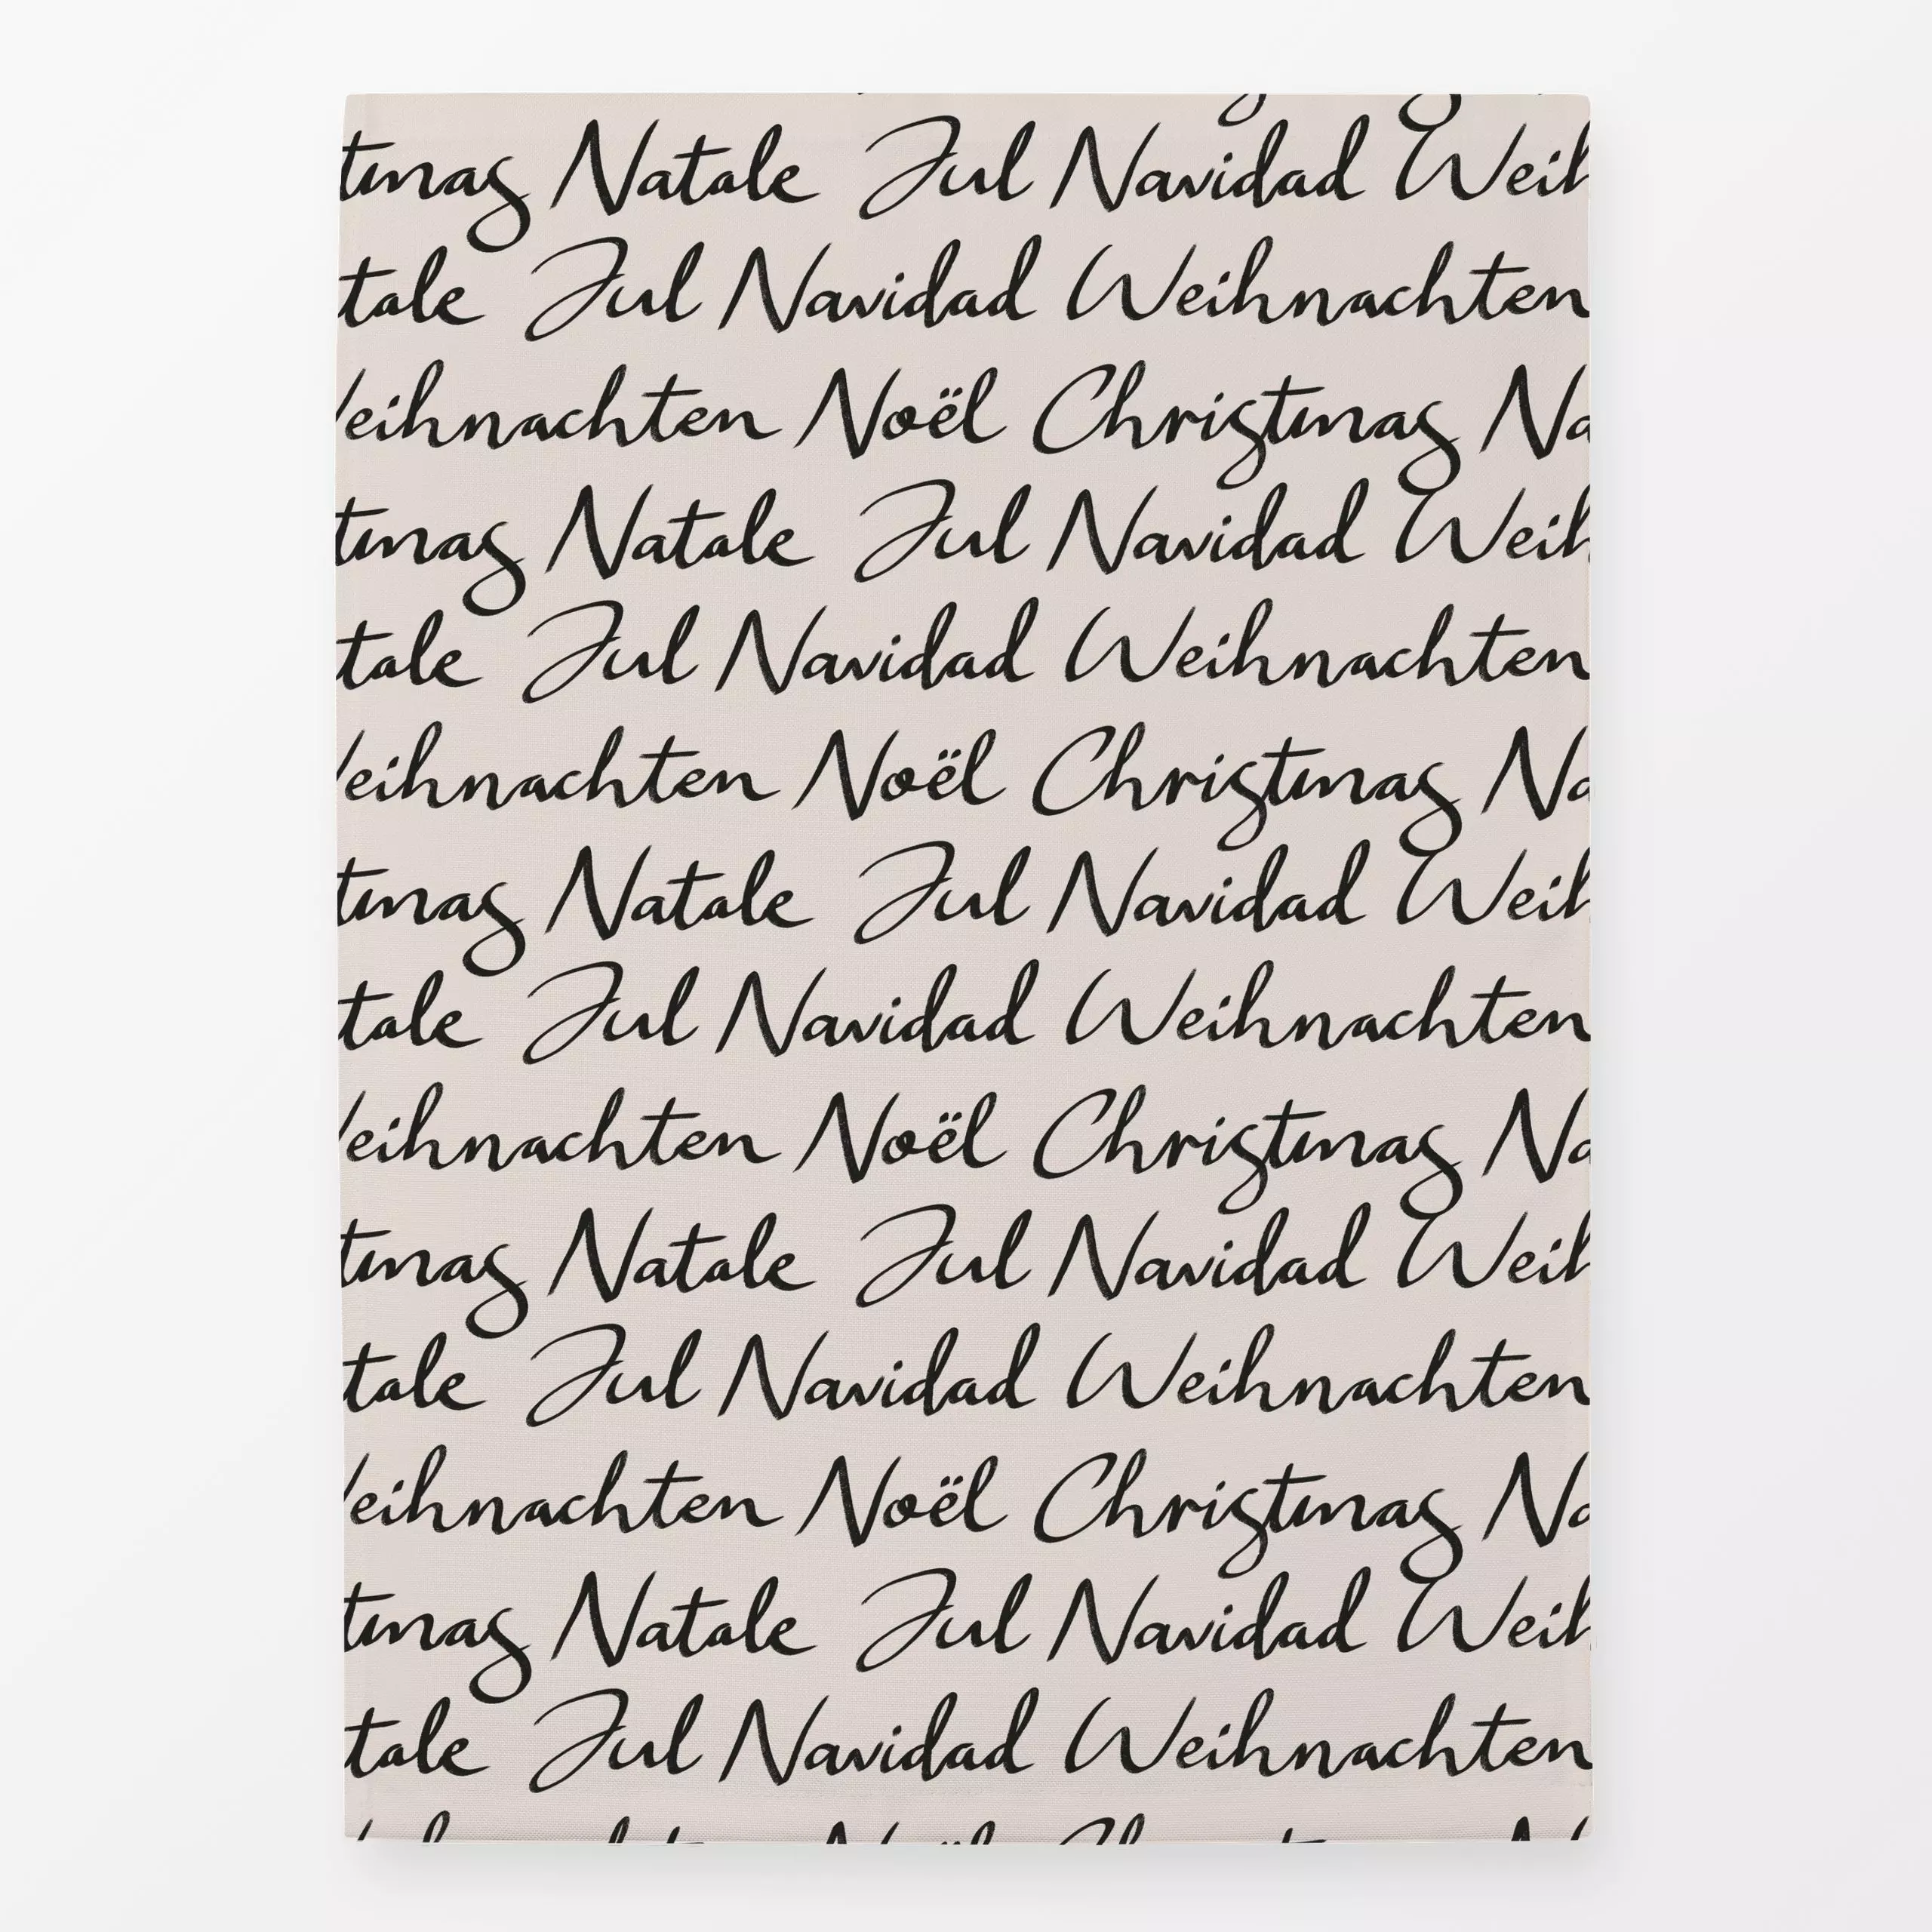 tmas Natale Jul Navidad Weih
tale Jul Navidad Weihnachten
eihnachten Noël Christmas Na
tmas Natale Jul Navidad Weih
tale Jul Navidad Weihnachten
eihnachten Noël Christmas Na
tmas Natale Jul Navidad Weih
tale Jul Navidad Weihnachten
eihnachten Noël Christmas Na
tmas Natale Jul Navidad Weih
tale Jul Navidad Weihnachten
eihnachten Noël Christmas Na
tmas Natale Jul Navidad Weih
tale Jul Navidad Weihnachten